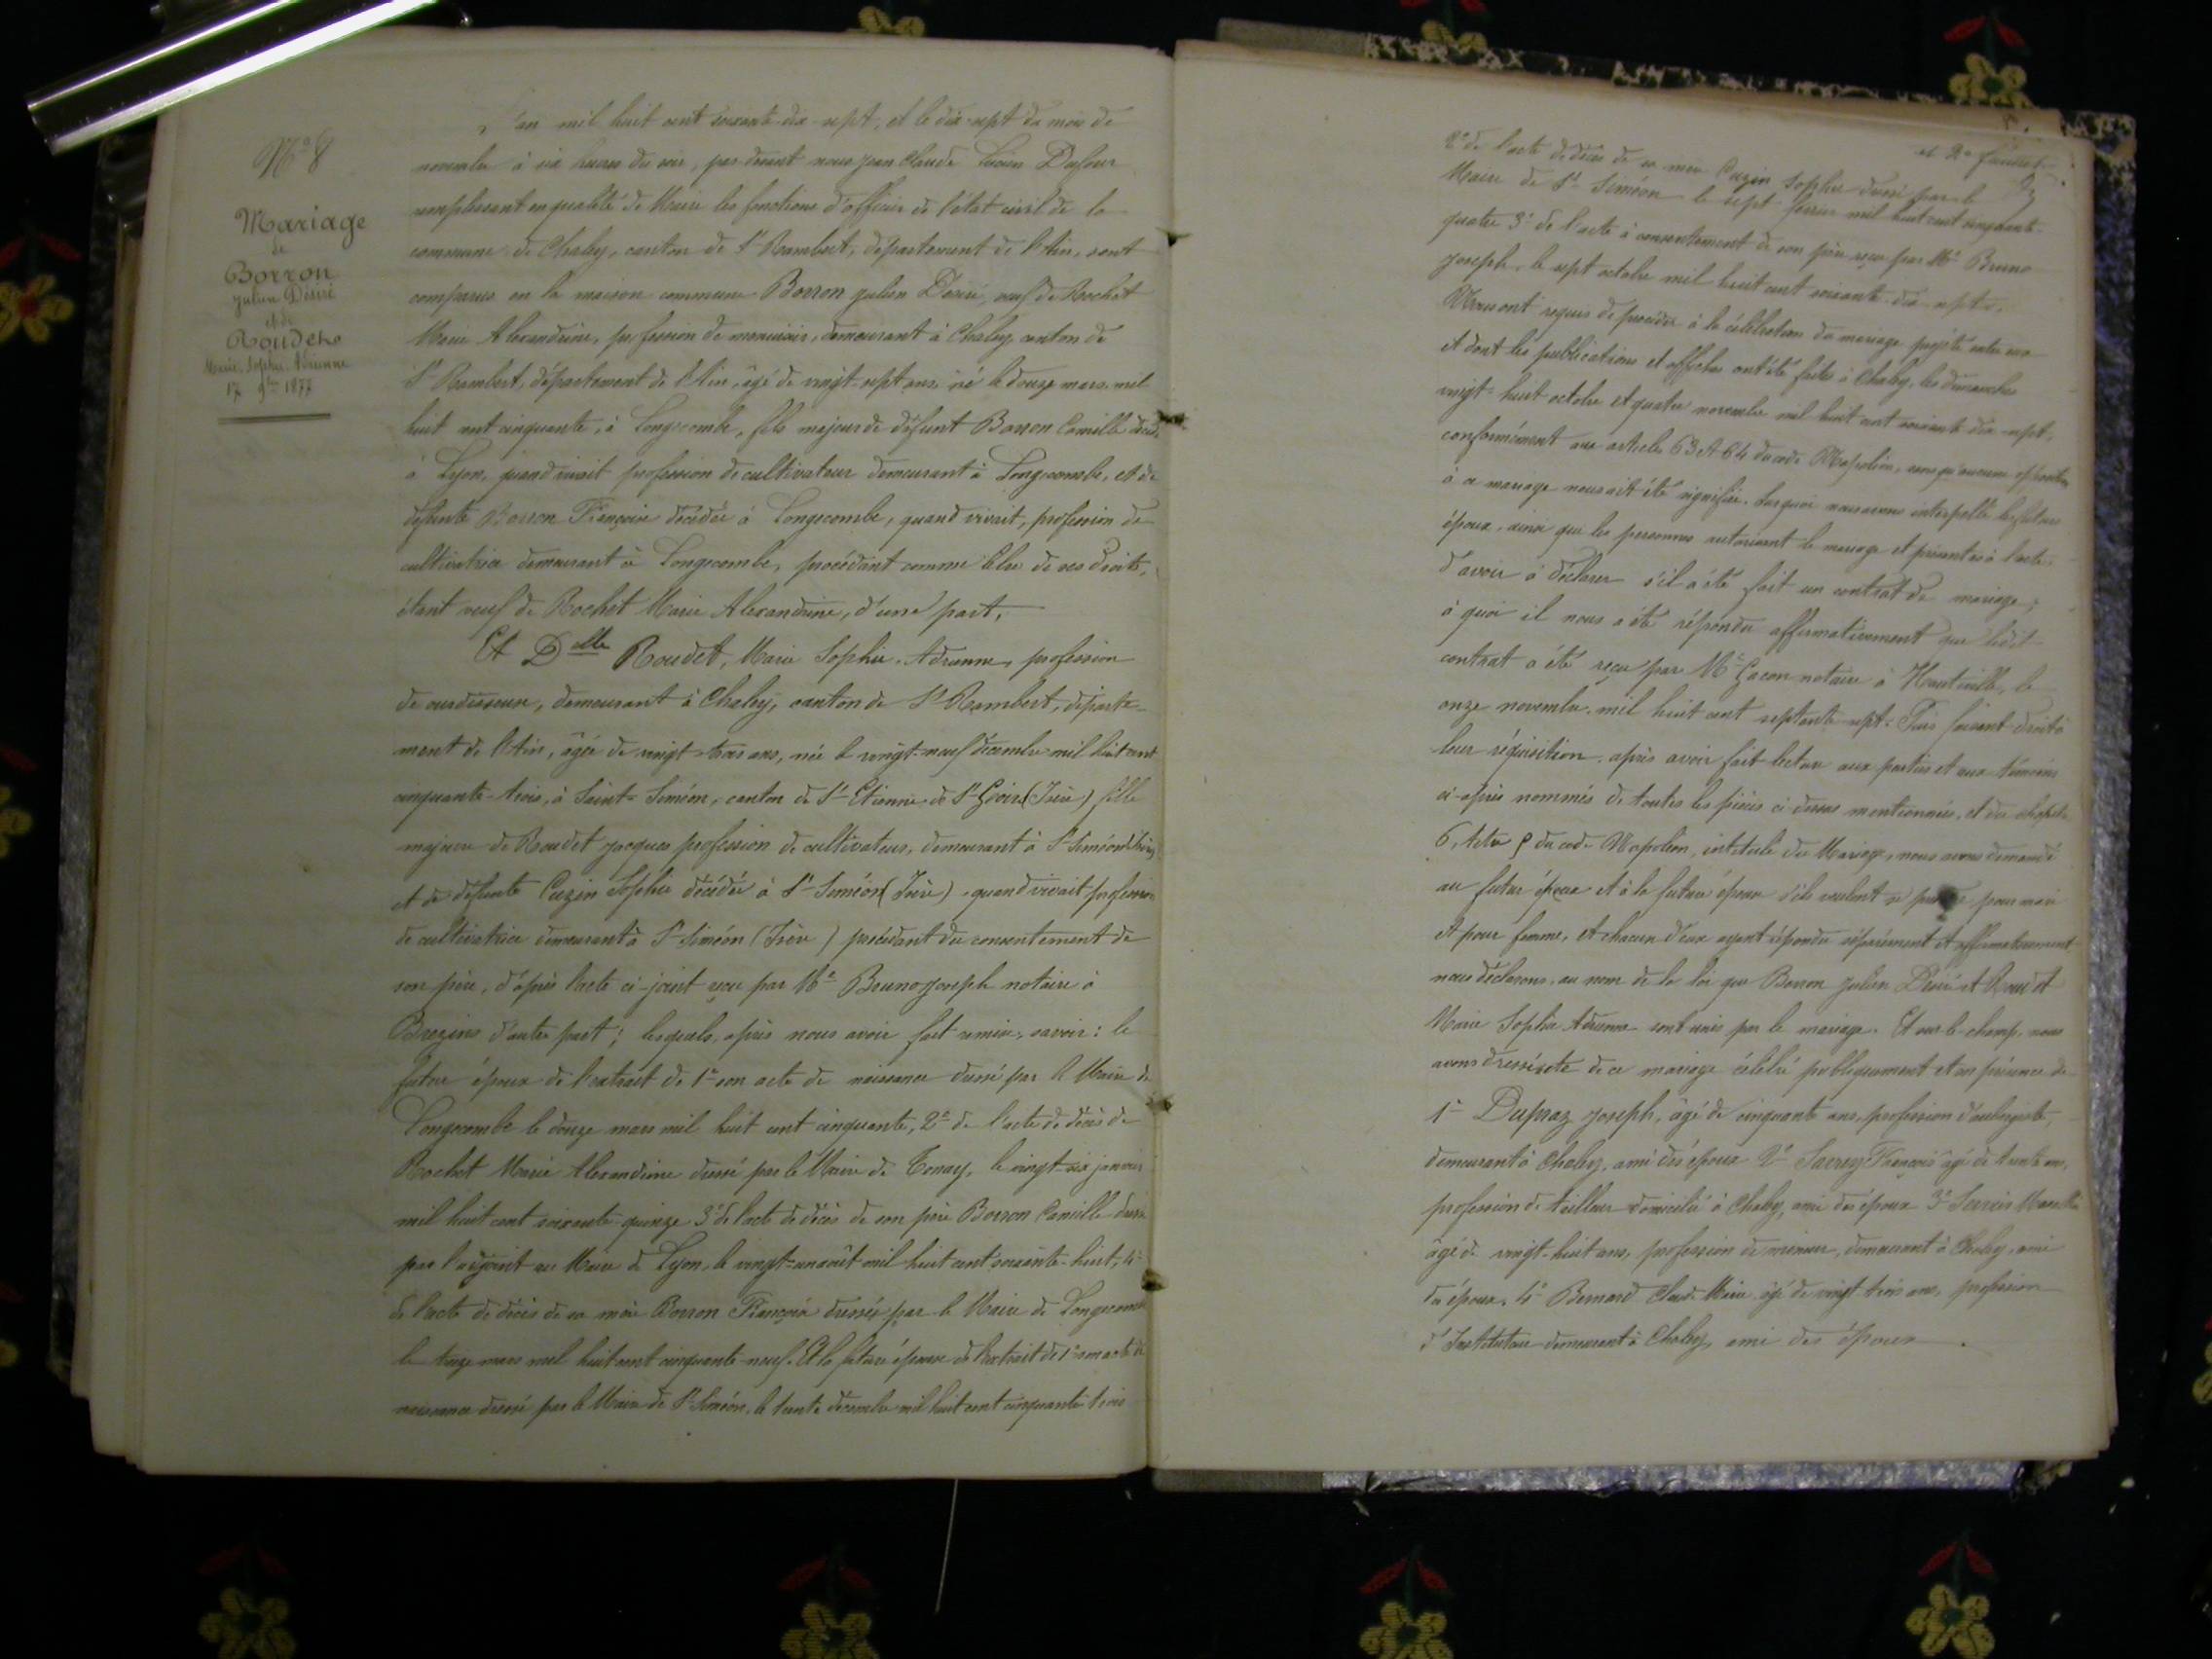 N° 8
Mariage
de
Borron
Julien Désiré
et de
Roudet
Marie Sophie Adrienne
17 9bre 1877
L'an mil huit cent soixante-dix-sept, et le dix-sept du mois de
novembre à six heures du soir, par devant nous Jean Claude Lucien Dufour
remplissant en qualité de Maire les fonctions d'officier de l'état civil de la
commune de Chaley, canton de St Rambert, département de l'Ain, sont
comparus en la maison commune Borron Julien Désiré, veuf de Rochet
Marie Alexandrine, profession de menuisier, demeurant à Chaley canton de
St Rambert, département de l'Ain, âgé de vingt-sept ans né le douze mars mil
huit cent cinquante, à Longecombe, fils majeur de défunt Borron Camille décédé
à Lyon, quand vivait profession de cultivateur demeurant à Longecombe, et de
défunte Borron Françoise décédée à Longecombe, quand vivait, profession de
cultivatrice demeurant à Longecombe, procédant comme libre de ses droits,
étant veuf de Rochet Marie Alexandrine, d'une part,
Et Delle Roudet, Marie Sophie Adrienne, profession
de ourdisseuse, demeurant à Chaley, canton de St Rambert, départe-
ment de l'Ain, âgée de vingt-trois ans, née le vingt-neuf décembre mil huit cent
cinquante-trois, à Saint-Siméon, canton de St Etienne de St Geoirs (Isère) fille
majeure de Roudet Jacques profession de cultivateur, demeurant à St Siméon (Isère)
et de défunte Cuzin Sophie décédée à St Siméon (Isère) quand vivait profession
de cultivatrice demeurant à St Siméon (Isère) procédant du consentement de
son père, d'après l'acte ci-joint reçu par Me Bruno Joseph notaire à
Brezins d'autre part; lesquels, après nous avoir fait remise, savoir: le
futur époux de l'extrait de 1° son acte de naissance dressé par le Maire de
Longecombe le douze mars mil huit cent cinquante, 2° de l'acte de décès de
Rochet Marie Alexandrine dressé par le Maire de Tenay, le vingt-six janvier
mil huit cent soixante-quinze 3° de l'acte de décès de son père Borron Camille dressé
par l'adjoint au Maire de Lyon, le vingt-un août mil huit cent soixante-huit, 4°
de l'acte de décès de sa mère Borron Françoise dressé par le Maire de Longecombe
le treize mars mil huit cent cinquante-neuf. Et la future épouse de l'extrait de 1° son acte de
naissance dressé par le Maire de St Siméon, le trente décembre mil huit cent cinquante trois
et
2° de l'acte de décès de sa mère Cuzin Sophie dressé par le
Maire de St Siméon le sept février mil huit cent cinquante-
quatre 3° de l'acte à consentement de son père reçu par Me Bruno
Joseph, le sept octobre mil huit cent soixante-dix-sept.
M'ont requis de procéder à la célébration du mariage projeté entre eux
et dont les publications et affiches ont été faites à Chaley, les dimanches
vingt-huit octobre et quatre novembre mil huit cent soixante-dix-sept,
conformément aux articles 63 et 64 du code Napoléon, sans qu'aucune opposition
à ce mariage nous ait été signifiée. Sur quoi nous avons interpellé les futurs
époux, ainsi que les personnes autorisant le mariage et présentes à l'acte,
d'avoir à déclarer s'il a été fait un contrat de mariage;
à quoi il nous a été répondu affirmativement que ledit
contrat a été reçu par Me Gacon notaire à Hauteville, le
onze novembre mil huit cent septante-sept. Puis faisant droit à
leur réquisition, après avoir fait lecture aux parties et aux témoins
ci-après nommés de toutes les pièces ci-dessus mentionnées, et du chapitre
6, titre 5 du code Napoléon, intitulé du Mariage, nous avons demandé
au futur époux et à la future épouse s'ils veulent se prendre pour mari
et pour femme, et chacun d'eux ayant répondu séparément et affirmativement
nous déclarons, au nom de la loi que Borron Julien Désiré et Roudet
Marie Sophie Adrienne sont unis par le mariage. Et sur-le-champ, nous
avons dressé acte de ce mariage célébré publiquement et en présence de
1° Dupraz Joseph, âgé de cinquante ans, profession d'aubergiste,
demeurant à Chaley, ami des époux 2° Sarrey François âgé de trente ans,
profession de tailleur domicilié à Chaley, ami des époux 3°
âgé de vingt-huit ans, profession de mineur, demeurant à Chaley, ami
des époux, 4° Bernard Claude Marie âgé de vingt trois ans, profession
d'Instituteur demeurant à Chaley, ami des époux.